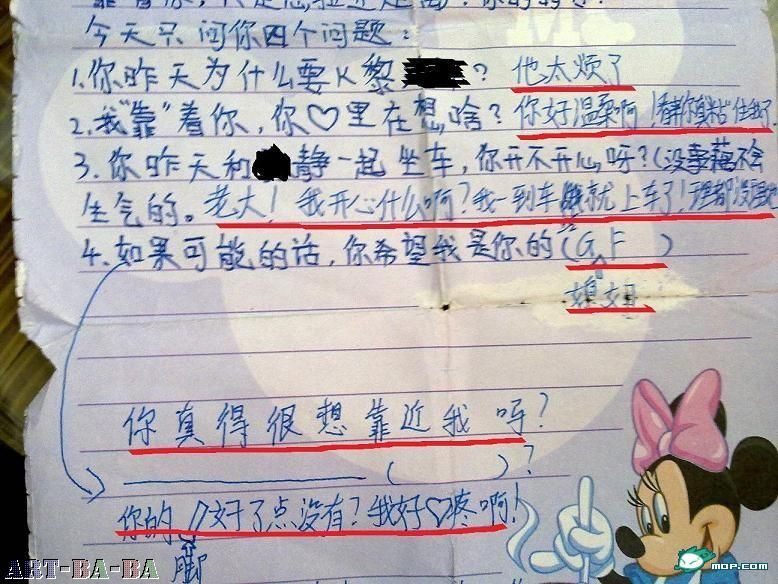 今天只问你四个问题：
1.你昨天为什么要K黎？他太烦了
2.我"靠"着你，你♡里在想啥？你好温柔啊！
3.你昨天和静一起坐车，你开不开心呀？(没事
生气的。老大！我开心什么啊？我一到车就上车了！
4.如果可能的话，你希望我是你的(GF)
媳妇
你真得很想靠近我呀？
( )？
你的好了点没有？我好♡疼啊！
脚
ART-BA-BA
mop.com